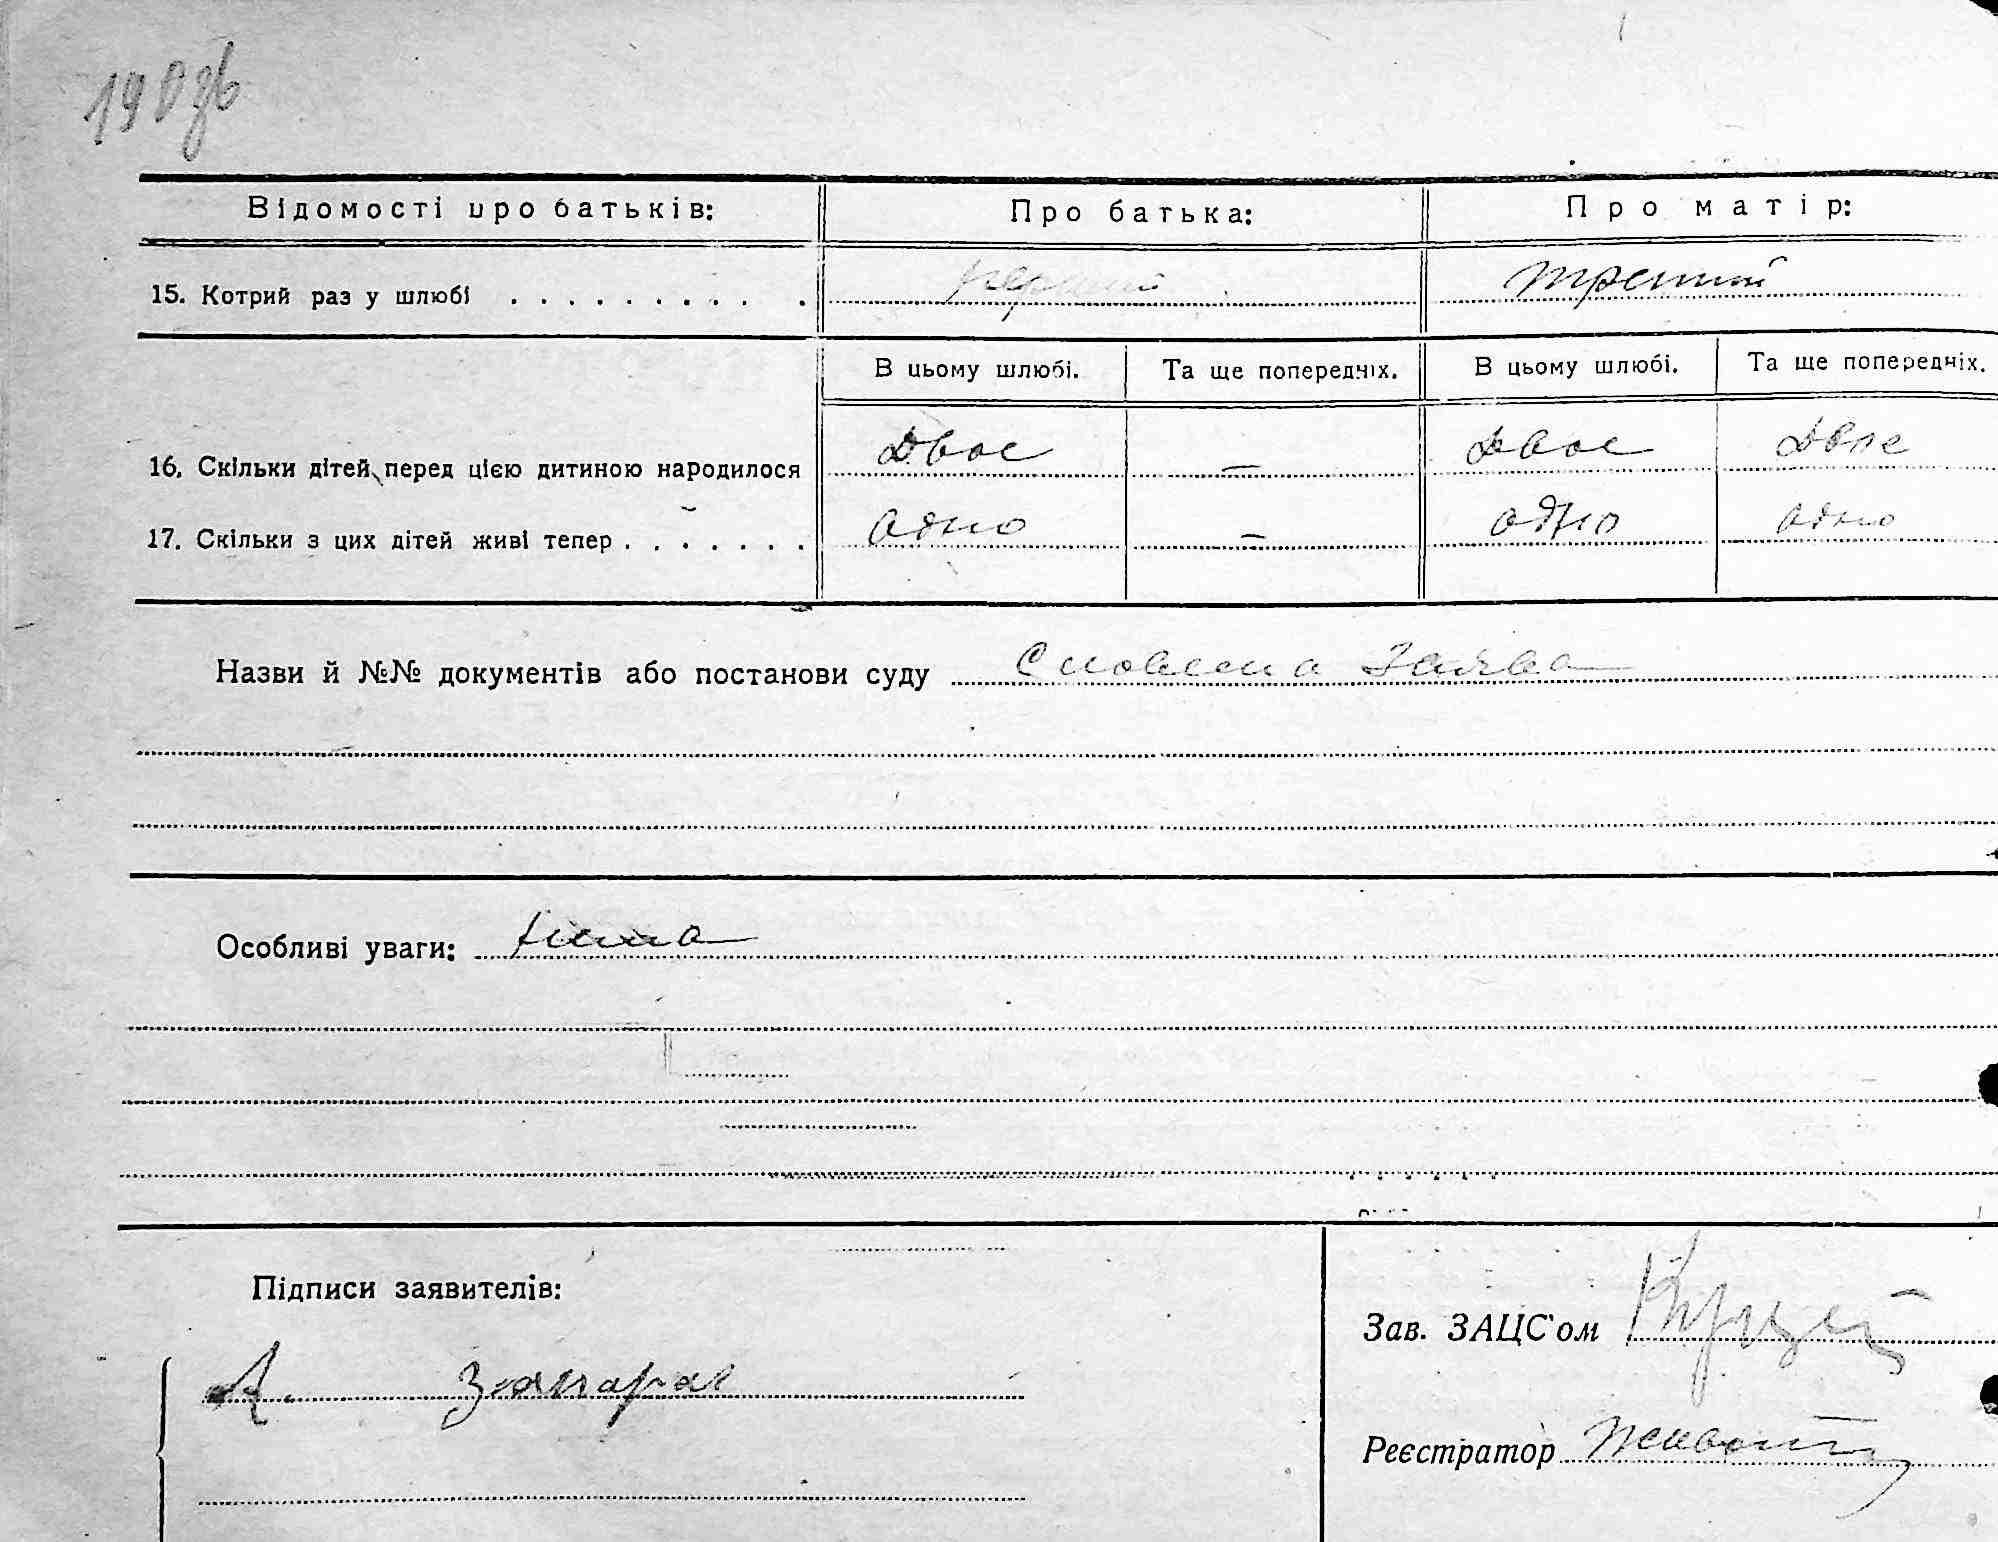 190 зв
Відомості про батьків: Про батька: Про матір:
15. Котрий раз у шлюбі . . . . . . . . . . перший третий
В цьому шлюбі. Та ще попередніх. В цьому шлюбі. Та ще попередніх.
16. Скільки дітей перед цією дитиною народилося Двоє — Двоє Двоє
17. Скільки з цих дітей живі тепер . . . . . . . одно — одно одно
Назви й №№ документів або постанови суду Словесна Заява
Особливі уваги: нема
Підписи заявителів:
Зав. ЗАЦС'ом
А.
Реєстратор